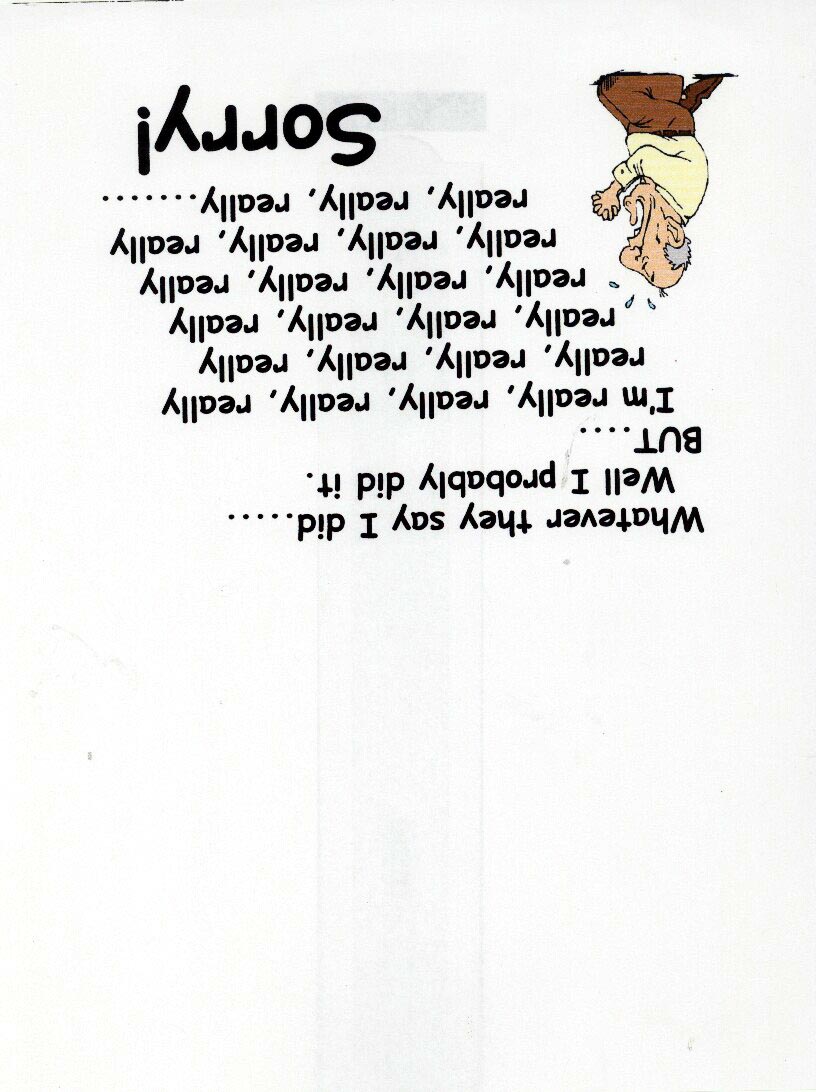 Whatever they say I did.....
Well I probably did it.
BUT....
I'm really, really, really, really
really, really, really, really
really, really, really, really
really, really, really, really
really, really, really, really
really, really, really.......
Sorry!